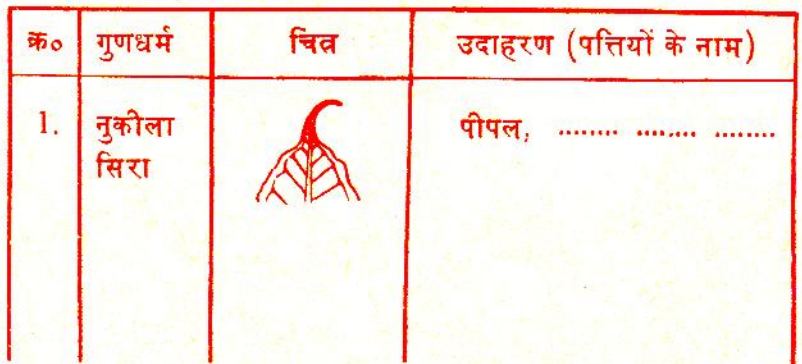 क्र० गुणधर्म चित्र उदाहरण (पत्तियों के नाम)
1. नुकीला पीपल, ........ ........ ........
सिरा